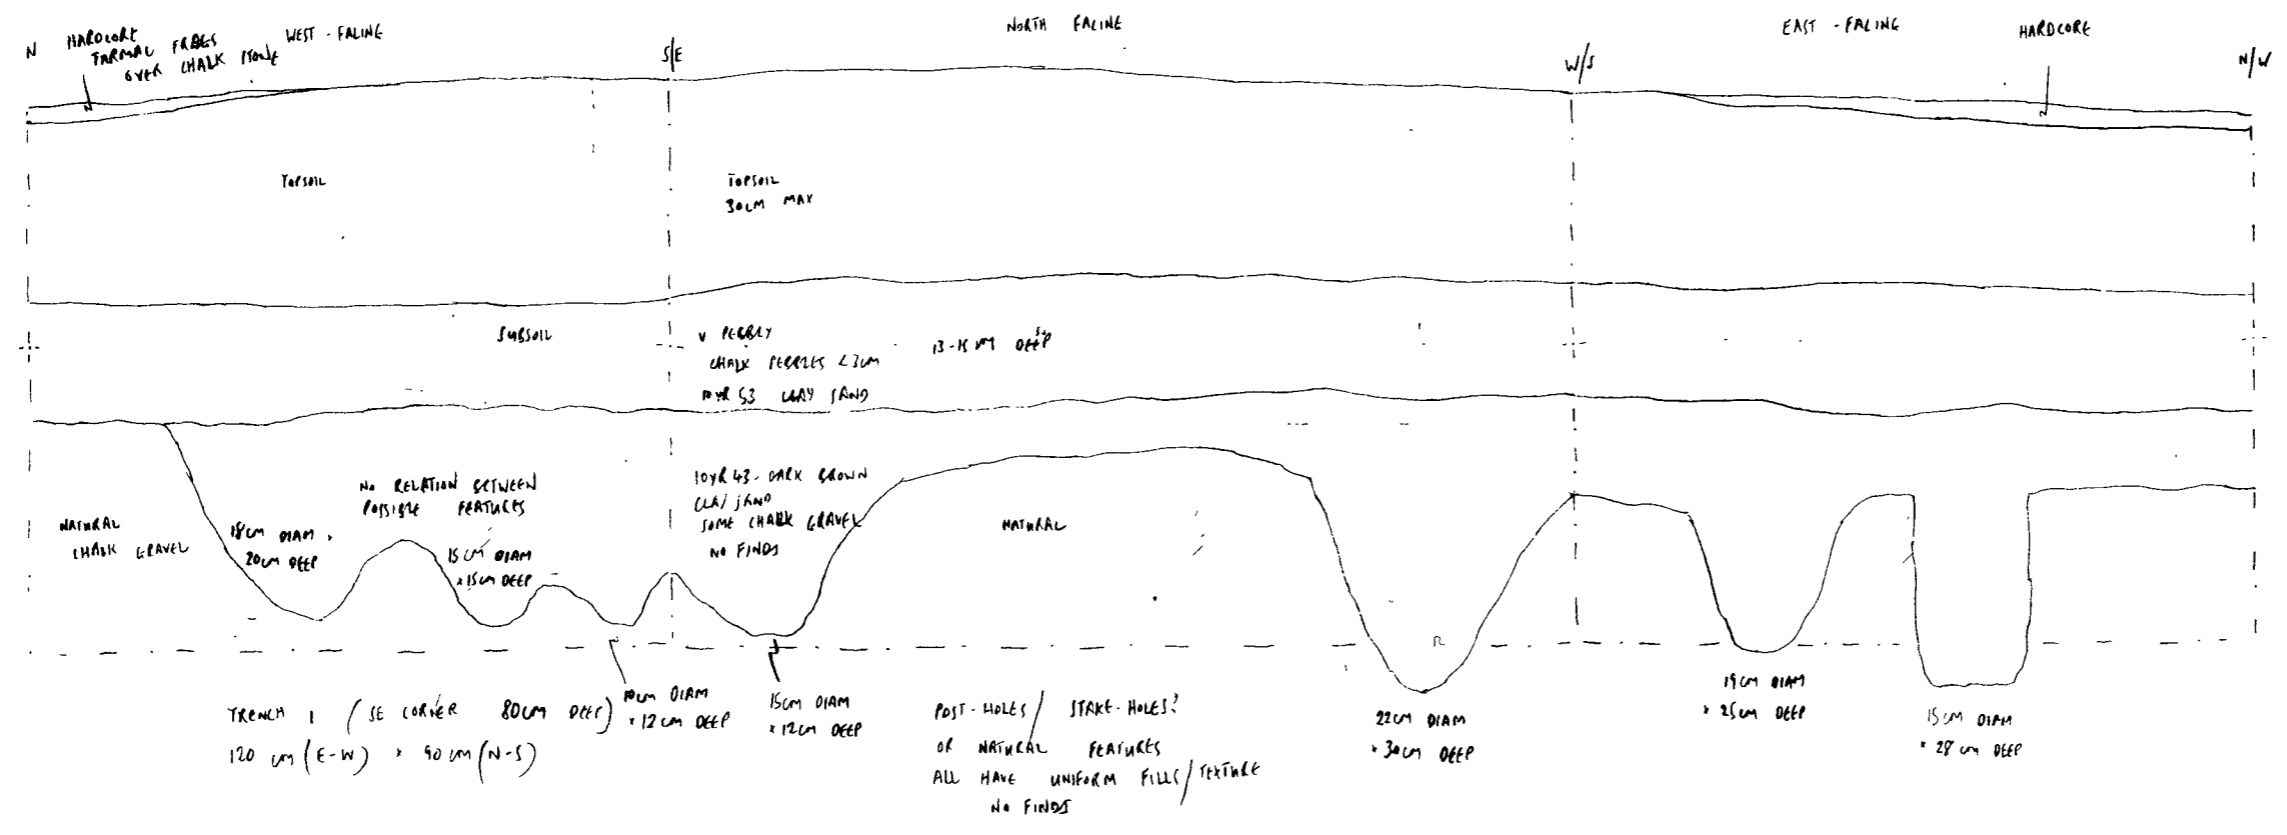 N
HARDCORE
TARMAC FRAGS
OVER CHALK STONE
WEST-FACING
S/E
NORTH FACING
W/S
EAST-FACING
HARDCORE
N/W
TOPSOIL
TOPSOIL
30CM MAX
SUBSOIL
V PEBBLY
CHALK PEBBLES <3CM
10YR 53 CLAY SAND
13-15 CM DEEP
NATURAL
CHALK GRAVEL
NO RELATION BETWEEN
POSSIBLE FEATURES
18CM DIAM ×
20CM DEEP
15CM DIAM
×15CM DEEP
10YR 43 - DARK BROWN
CLAY SAND
SOME CHALK GRAVEL
NO FINDS
NATURAL
TRENCH 1 (SE CORNER 80CM DEEP)
120 CM (E-W) × 90 CM (N-S)
10CM DIAM
× 12CM DEEP
15CM DIAM
× 12CM DEEP
POST-HOLES / STAKE-HOLES?
OR NATURAL FEATURES
ALL HAVE UNIFORM FILLS/TEXTURE
NO FINDS
22CM DIAM
× 30CM DEEP
19CM DIAM
× 25CM DEEP
15CM DIAM
× 28CM DEEP